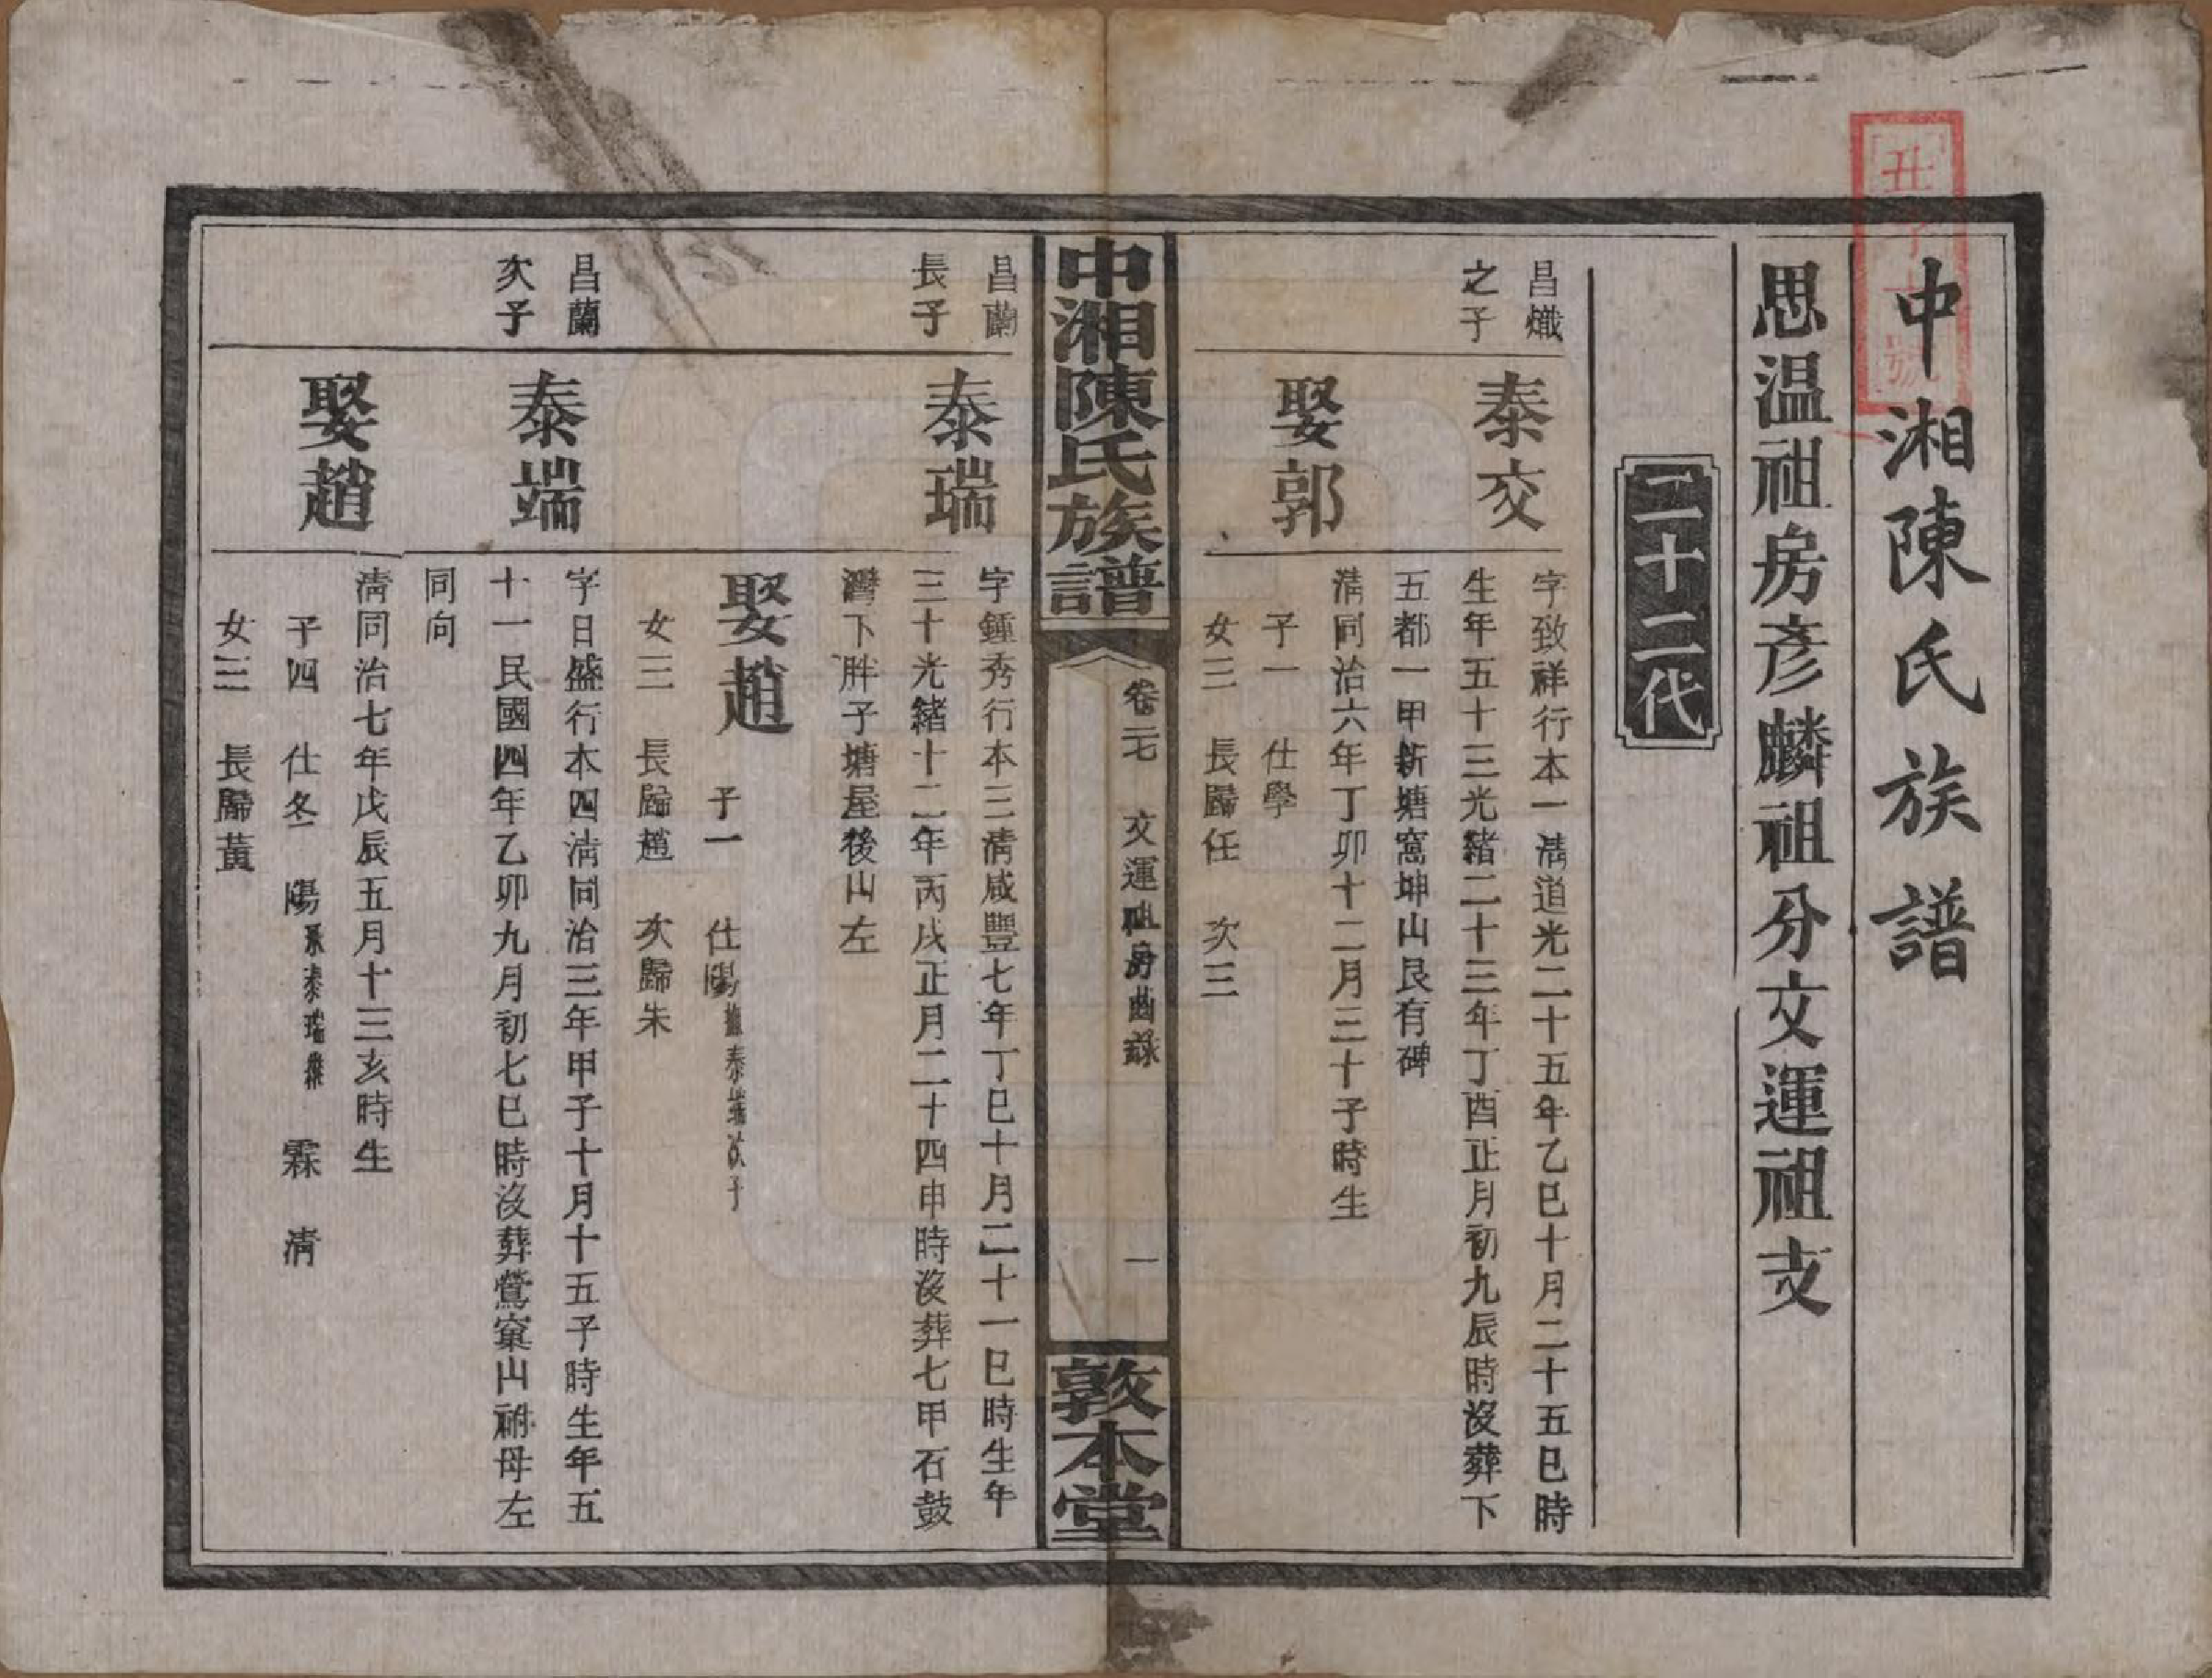 中湘陳氏族譜
思温祖房彥麟祖分文運祖支
二十二代
昌熾
之子
泰交
字致祥行本一清道光二十五年乙巳十月二十五巳時
生年五十三光緒二十三年丁酉正月初九辰時沒葬下
五都一甲新塘窩坤山艮有碑
娶郭
清同治六年丁卯十二月三十子時生
子一 仕學
女三 長歸任 次三
中湘陳氏族譜
卷二七 文運祖房齒錄 一
敦本堂
昌蘭
長子
泰瑞
字鍾秀行本三清咸豐七年丁巳十月二十一巳時生年
三十光緒十二年丙戌正月二十四申時沒葬七甲石鼓
灣下胖子塘屋後山左
娶趙
子一 仕陽撫泰端次子
女三 長歸趙 次歸朱
昌蘭
次子
泰端
字日盛行本四清同治三年甲子十月十五子時生年五
十一民國四年乙卯九月初七巳時沒葬鶯窠山祔母左
同向
娶趙
清同治七年戊辰五月十三亥時生
子四 仕冬 陽承泰瑞繼 霖 清
女三 長歸黃